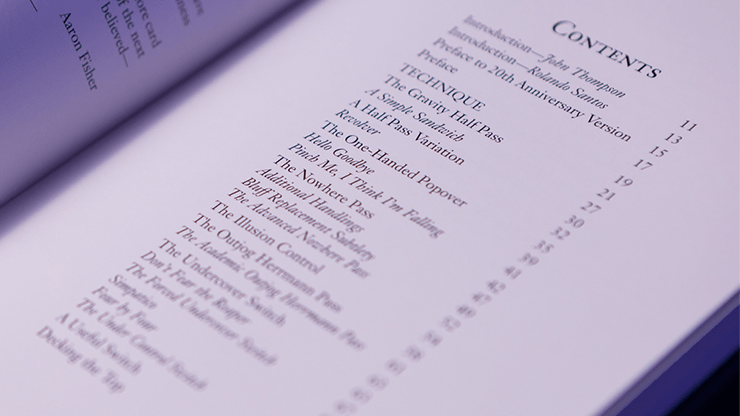 ave
iness
ore card
of the next
believed—
Aaron Fisher
CONTENTS
Introduction—John Thompson 11
Introduction—Rolando Santos 13
Preface to 20th Anniversary Version 15
Preface 17
TECHNIQUE 19
The Gravity Half Pass 21
A Simple Sandwich 27
A Half Pass Variation 30
Revolver 32
The One-Handed Popover 35
Hello Goodbye 39
Pinch Me, I Think I'm Falling 41
The Nowhere Pass
Additional Handlings
Bluff Replacement Subtlety
The Advanced Nowhere Pass
The Illusion Control
The Outjog Herrmann Pass
The Academic Outjog Herrmann Pass
The Undercover Switch
Don't Fear the Reaper
The Forced Undercover Switch
Simpatico
Four by Four
The Under Control Switch
A Useful Switch
Decking the Top